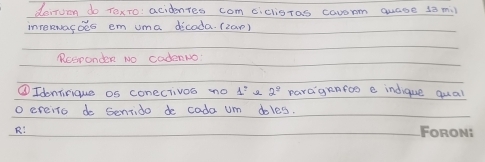 Leitura do Texto: acidentes com ciclistas causam quase 13 mil
internações em uma década. (zap)
Responder no caderno:
① Identifique os conectivos no 1º e 2º parágrafos e indique qual
o efeito de sentido de cada um deles.
R:
FORONI